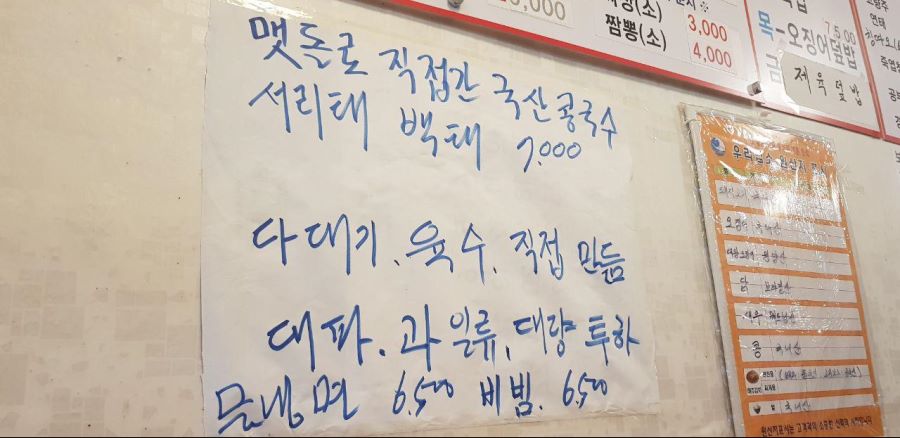 맷돌로 직접간 국산콩국수
서리태 백태 7.000
다대기. 육수. 직접 만듦
대파. 과일류, 대량 투하
물냉면 6.500 비빔. 6.500
짬뽕(소)
3,000
4,000
목-오징어덮밥
금 제육덮밥
우리업소 원산지 표시
오징어
닭 브라질산
콩 국내산
국내산